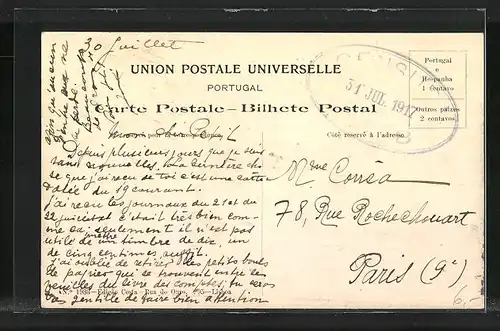 30 Juillet
UNION POSTALE UNIVERSELLE
PORTUGAL
Carte Postale – Bilhete Postal
Côté reservé à l'adresse
Portugal
e
Hespanha
1 centavo
Outros paizes
2 centavos
CENSU
31 JUL. 1917
Depuis plusieurs jours que je suis
sans nouvelles. La dernière
que j'ai reçu de toi c'est une carte
datée du 19 courant.
J'ai reçu les journaux du 21 et du
22 juillet et c'était très bien com-
me ça, seulement il n'est pas
utile de mettre un timbre de dix, un
de cinq centimes suffit.
J'ai oublié de retirer des petits bouts
de papier qui se trouvent entre les
feuilles du livre des comptes, tu seras
bien gentille de faire bien attention
Mme Corrêa
78, Rue Rochechouart
Paris (9e)
N.º 1033 – Edição Costa – Rua do Ouro, 295 – Lisboa
6,-